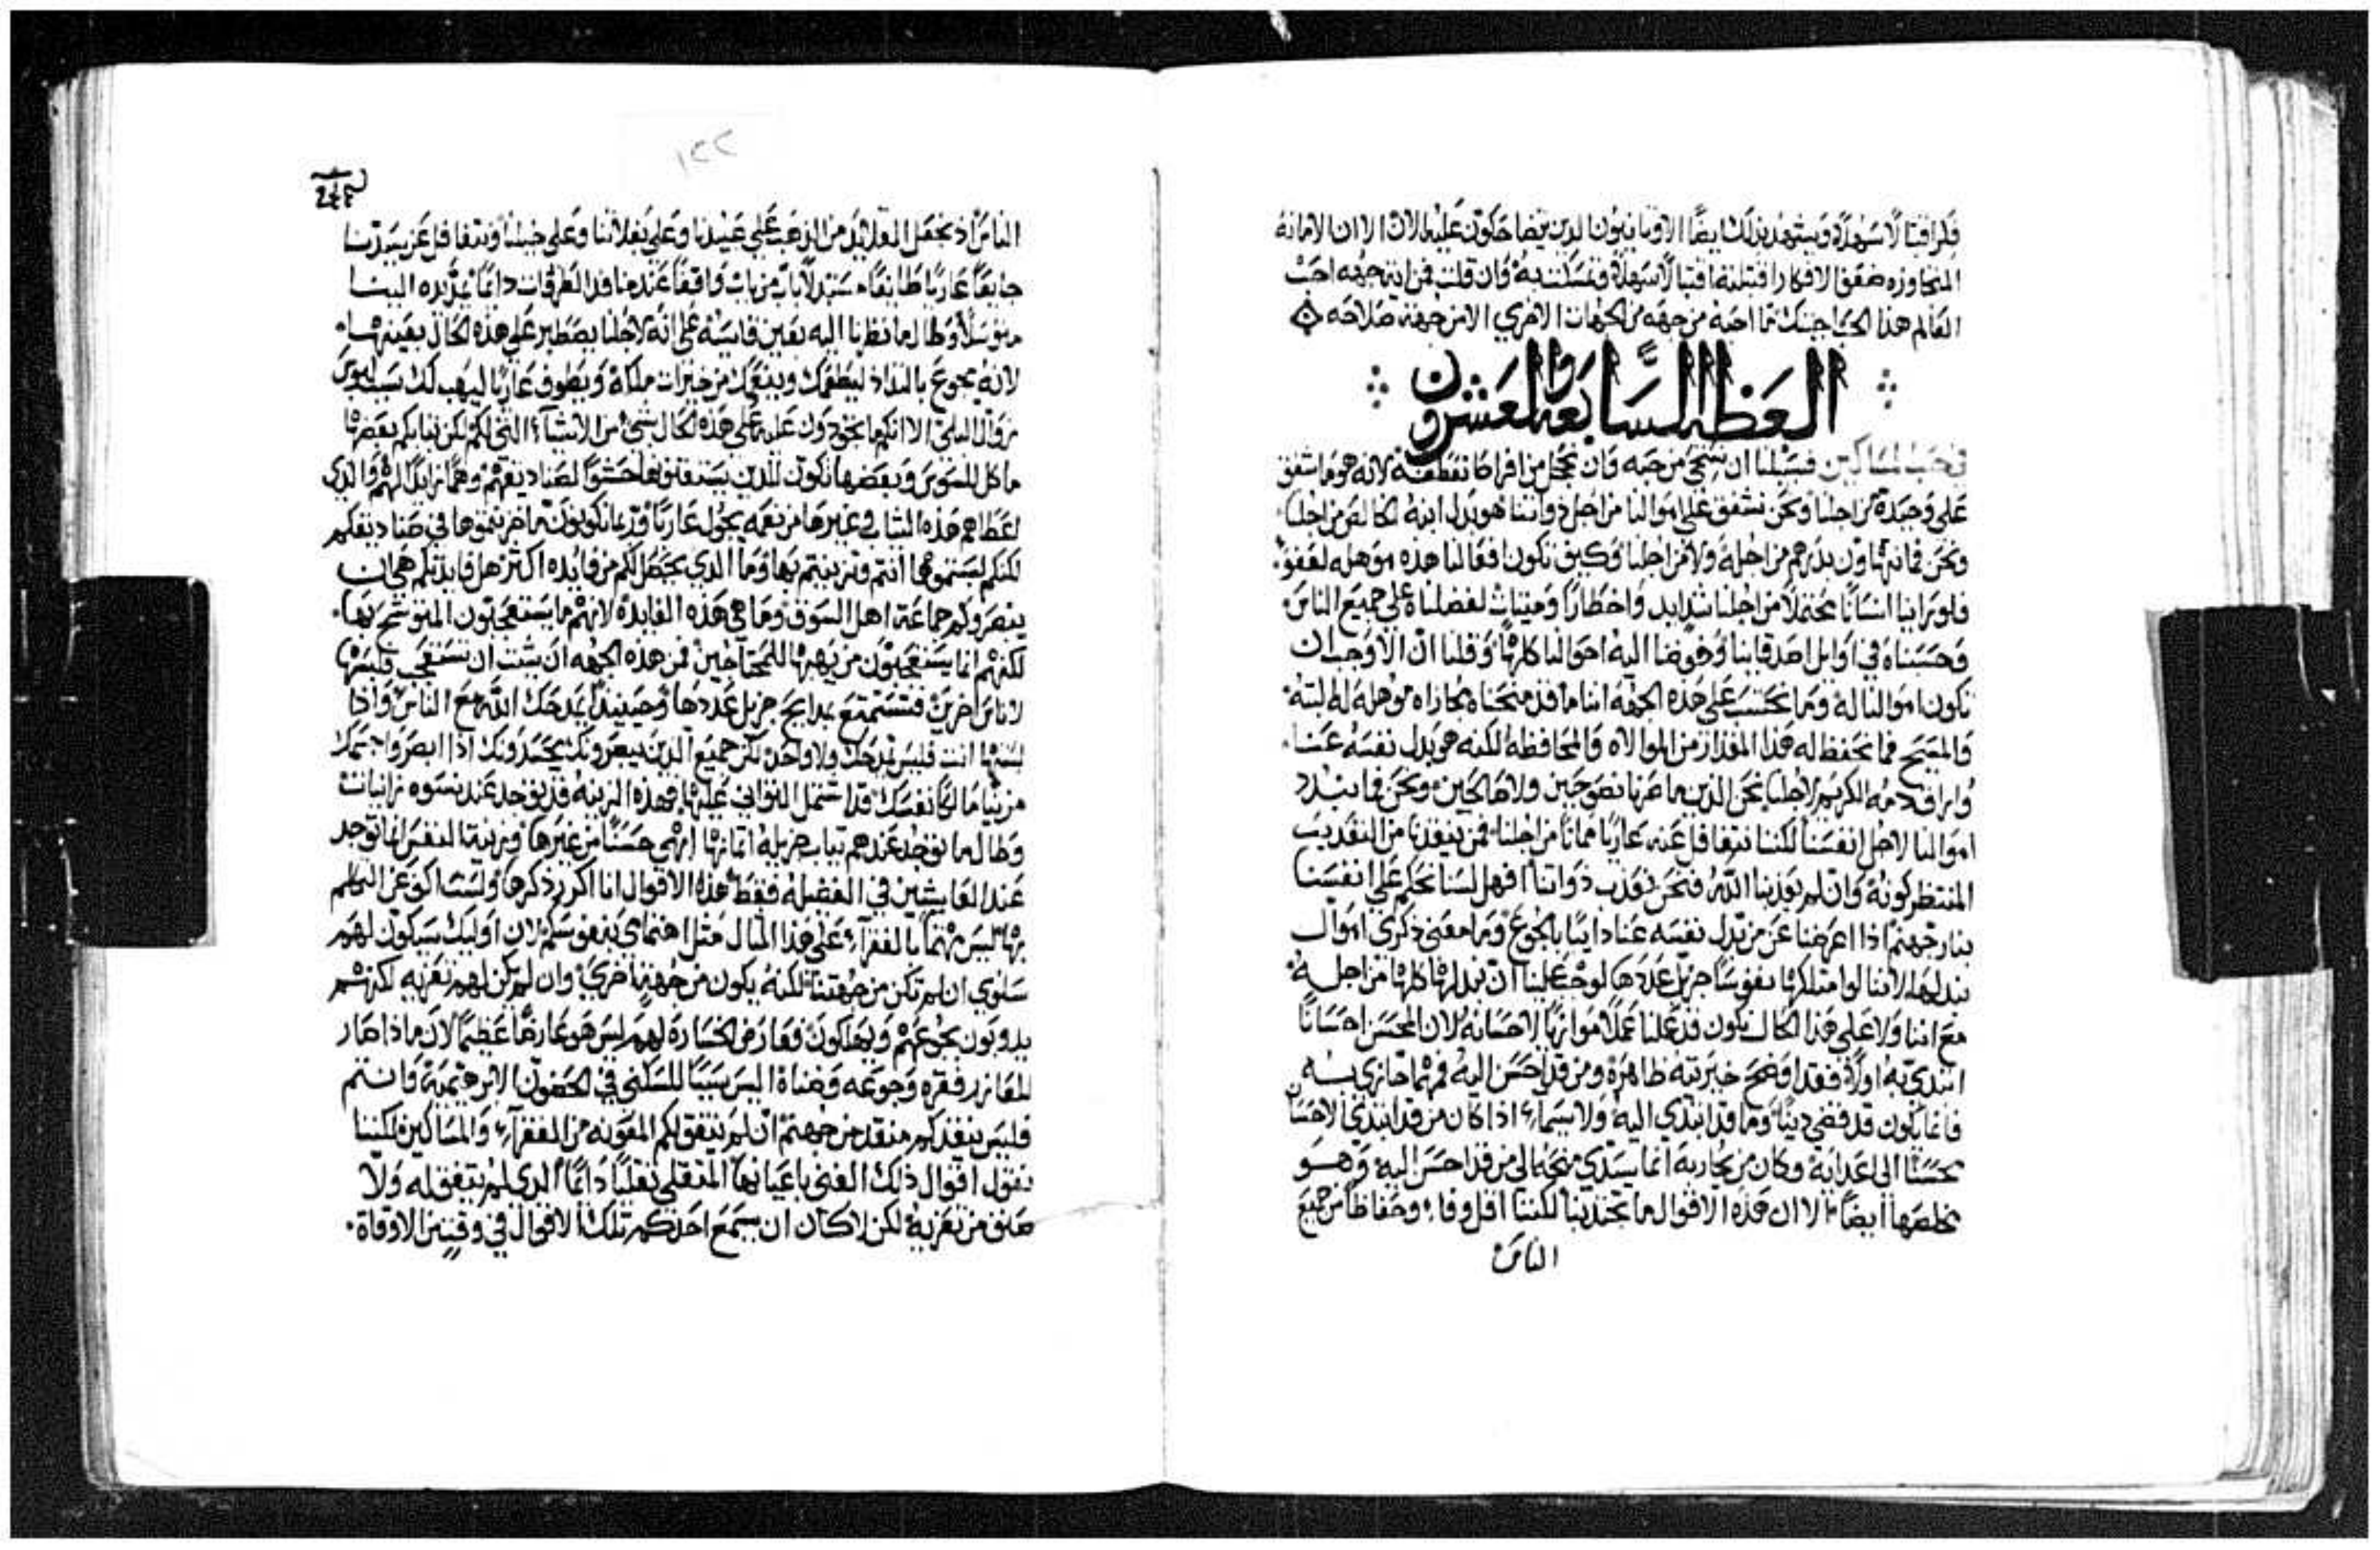 فلم اقتبالا سهلا ويشهد بذلك ايضا الاوثانيون الدين ايضا حكون عليها الان الا ان الامانة
المتجاوزه ضعف الافكار اقتبلتها اقتبالا سهلا وتمسكت به وان قلت فمن اية جهه احب
العالم هذا الحب اجبتك ما احبه من جهه من الجهات الاخري الا من جهة صلاحه
العظة السابعه والعشرون
في حب المساكين فسبيلنا ان نستحي من حبه وان نخجل من افراط تعطفه لانه هو ما اشفق
علي وحيده من اجلنا ونحن نشفق علي اموالنا من اجل ذواتنا هو بدل ابنه الخالص من اجلنا
ونحن فما نتهاون بدرهم من اجله ولا من اجلنا وكيف تكون افعالنا هذه موهله لعفو
فلو راينا انسانا محتملا من اجلنا شدايد واخطارا وميتات لفضلناه علي جميع الناس
وحسبناه في اوايل اصدقاينا وفوضنا اليه احوالنا كلها وقلنا ان الاوجب ان
تكون اموالنا له وما نحتسب علي هذه الجهه اننا ما قد منحناه مجازاه موهله له البته
والمسيح فما نحفظ له هذا المقدار من الموالاه والمحافظه لكنه هو بدل نفسه عنا
وارق دمه الكريم لاجلنا نحن الذين ما صرنا نصوحين ولا صالحين ونحن فما نبدد
اموالنا لاجل انفسنا لكننا نتغافل عنه عاريا مهانا من اجلنا فمن ينقذنا من التعديب
المنتظر كونه وان لم يعدبنا الله فنحن نعذب ذواتنا افهل لسنا نحكم علي انفسنا
بنار جهنم اذا اعرضنا عن من بدل نفسه عنا دايبا بالجوع وما معني ذكري اموال
نبدلها لاننا لو امتلكنا نفوسا جزيل عددها لوجب علينا ان نبدلها كلها من اجله
مع اننا ولا علي هذا الحال نكون قد عملنا عملا موازيا لاحسانه لان المحسن احسانا
ابتدي به اولا فقد اوضح خيريته ظاهره ومن قد احسن اليه فمهما جازي به
فانما يكون قد قضي دينا وما قد ابتدي اليه ولا سيما اذا كان من قد ابتدي الاحسان
محسنا الي اعدايه وكان من يجازيه انما يسدي منحه الي من قد احسن اليه وهو
يخلصها ايضا الا ان هذه الاقوال ما تجتدبنا لكننا اقل وفا وحفاظا من جميع
الناس
١٢٢
الناس اذ نجعل القلايد من الذهب علي عبيدنا وعلي بغلاتنا وعلي خيلنا ونتغافل عن سيدنا
جايعا عاريا طايفا مستبدلا بابا من باب واقفا عند منافد الطرقات دايما يمد يده الينا
متوسلا وطالما نظرنا اليه بعين قاسيه علي انه لاجلنا يصطبر علي هذه الحال بعينها
لانه يجوع بالتداد ليطعمك وينفعك من خيرات ملكه ويطوف عاريا ليهب لك سبب لبوس
زوال البلي الا انكم ما تجودون عليه علي هذه الحال بشي من الاشيا التي لكم لكن ثيابكم بعضها
ماكل للسوس وبعضها تكون للدين يستعفنونها حشوا لصناديقهم وهما زايدا لهم والدي
اعطاهم هذه الثياب وغيرها من نعمه يجول عاريا
لكنكم لبستموها انتم وتزينتم بها وما الدي يحصل لكم من فايده اكثر هل فايدتكم هي ان
ينصروكم جماعة اهل السوق وما هي هذه الفايده لانهم ما يستعجبون المتوشح بها
لكنهم انما يستعجبون من يهبها للمحتاجين فمن هذه الجهه ان شيت ان تستعجب فلبسها
لاناس اخرين فتستمتع بمدايح جزيل عددها وحينيد يمدحك الله مع الناس واذا
لبستها انت فليس يمدحك ولا واحد لكن جميع الدين يبصرونك يحسدونك اذا ابصروا جسمك
مزينا مالكا نفسك قد اشتمل التواني عليها فهذه الزينه قد يوجد عند نسوه زانيات
وطالما توجد عندهم ثياب جزيله اثمانها ابهي حسنا من غيرها وزينة النفس انما توجد
عند العايشين في الفضيله فقط هذه الاقوال انا اكرر ذكرها ولست اكف عن التكلم
بها ليس مهتما بالفقرا علي هذا المثال مثل اهتمامي بنفوسكم لان اوليك سيكون لهم
سلوي ان لم تكن من جهتنا لكنه يكون من جهة اخري وان لم يكن لهم تعزيه لكنهم
يدوبون بجوعهم ويهلكون فعارض الخساره لهم ليس هو عارضا عظيما لان ماذا ضار
للعازر فقره وجوعه وضناه اليس سببا للسكني في الحضون الابرهيميه وانتم
فليس ينقذكم منقد من جهنم ان لم يتفق لكم المعونه من الفقرا والمساكين لكننا
نقول اقوال ذلك الغني باعيانها المتقلي تقليا دايما الدي لم يتفق له ولا
صنف من تعزيه لكن لا كان ان يسمع احدكم تلك الاقوال في وقت من الاوقات